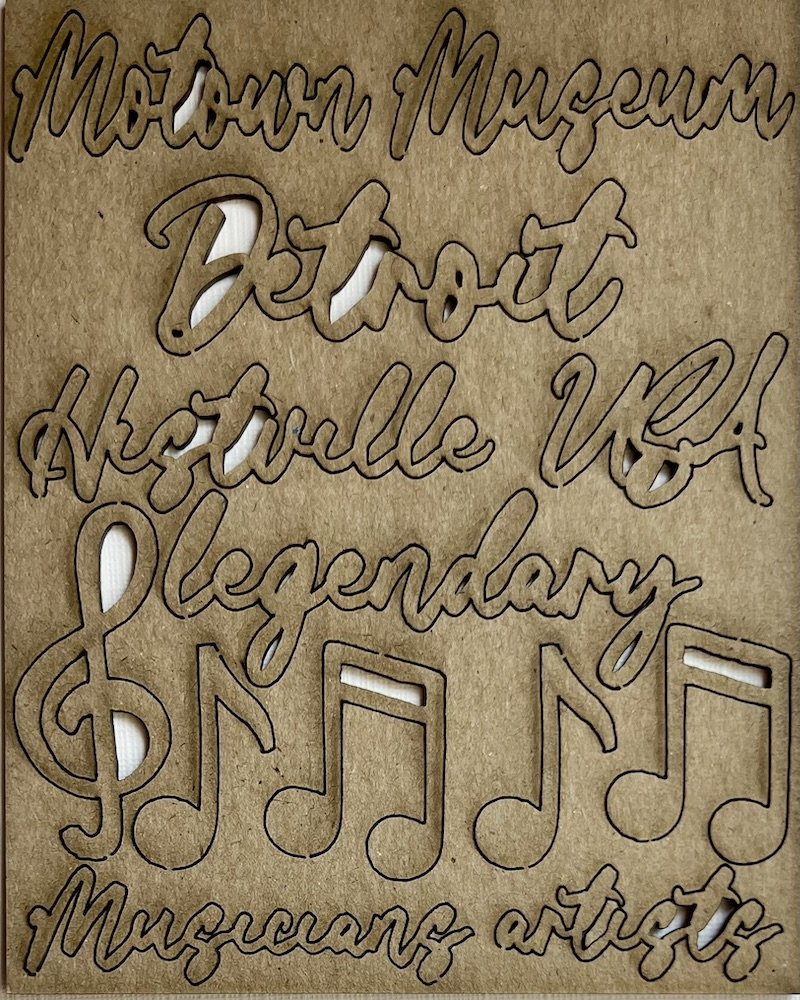 Motown Museum
Detroit
Hitsville USA
legendary
Musicians artists